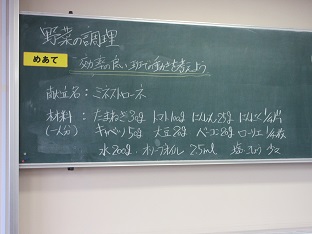 野菜の調理
めあて
効率の良い調理の手順を考えよう
献立名：ミネストローネ
材料：たまねぎ30g トマト100g にんじん25g にんにく1/4片
(一人分) キャベツ50g 大豆20g ベーコン20g ローリエ1/4枚
水200g オリーブオイル 2.5ml 塩 こしょう 少々